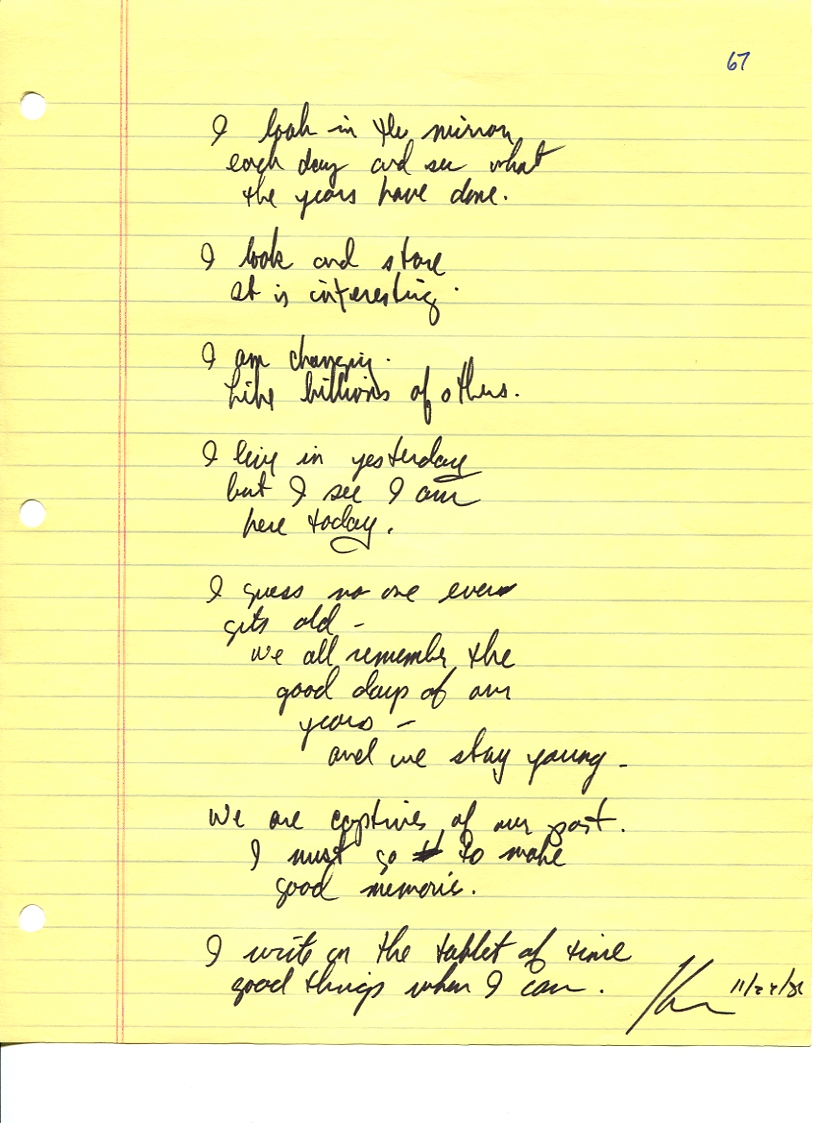 67
I look in the mirror
each day and see what
the years have done.
I look and stare
It is interesting.
I am changing.
Like billions of others.
I live in yesterday
but I see I am
here today.
I guess no one ever
gets old -
we all remember the
good days of our
years -
and we stay young -
We are captives of our past.
I must go to make
good memories.
I write on the tablet of time
good things when I can.